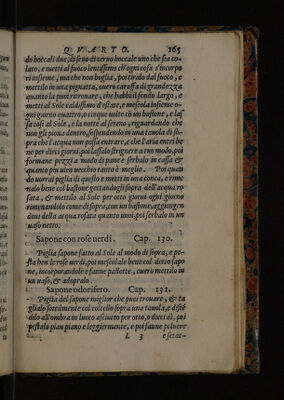 QVARTO. 165
do boccali due, di seuo di ceruo boccale uno che sia co-
lato, e metti al fuoco lentissimo ch'ogni cosa s'incorpo
ri insieme, ma che non buglia, poi tiralo dal fuoco, e
mettilo in una pignatta, ouero caraffa di grandezza
quanto la puoi trouare, che habbi il fondo largo, e
metti al Sole caldissimo d'istate, e mescola insieme o-
gni giorno quattro, o cinque uolte cõ un bastone, e las
sa cosi al Sole, e la notte al sereno, riguardando che
non gli pioua dentro, sospendendo in una tauola di so-
pra che l'acqua non possa entrare, e che l'aria entri be
ne per dieci giorni, poi lassalo strignere a tuo modo, poi
formane pezzi a modo di pane e serbalo in cassa &
quanto piu uien uecchio tanto è meglio. Poi quan
do uorrai piglia di questo e metti in una conca, e rime
nalo bene col bastone gettandogli sopra dell'acqua ro
sata, & mettilo al Sole per otto giorni ogni giorno
rimenandolo come di sopra, con un bastone, aggiungen
doui della acqua rosata quanto uuoi, poi serbalo in un
uaso netto.
Sapone con rose uerdi. Cap. 130.
Piglia sapone fatto al Sole al modo di sopra, e pe-
sta ben le rose uerdi, poi mescolale bene col detto sapo
ne, incorporandole e fanne pallotte, ouero mettilo in
un uaso, & adopralo.
Sapone odorifero. Cap. 131.
Piglia del sapone miglior che puoi trouare, & ta
glialo sottilmente col coltello sopra una tauola, e disten
dilo all'ombra in luoco asciutto per otto, o dieci dì, poi
pestalo pian piano e leggiermente, e poi fanne poluere
L 3 e setac-